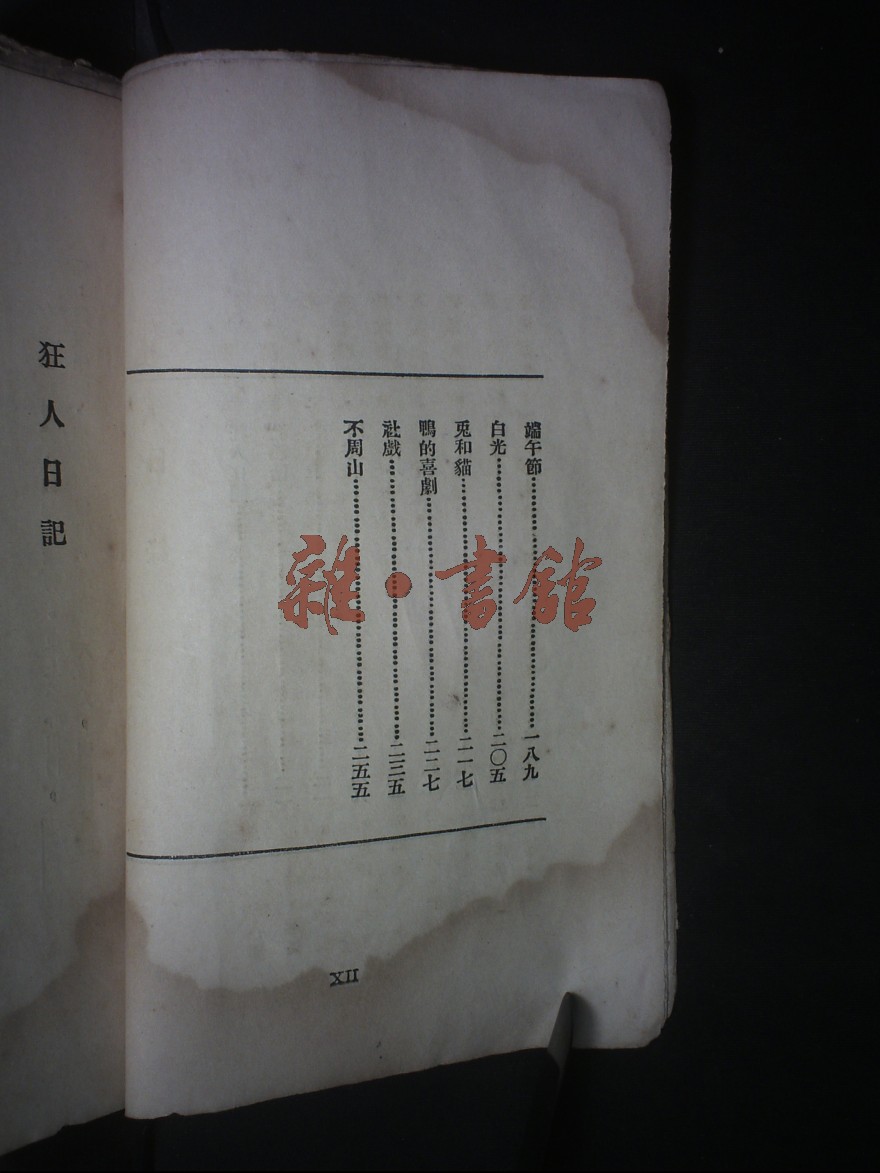 端午節……一八九
白光……二〇五
兎和貓……二一七
鴨的喜劇……二二七
社戲……二三五
不周山……二五五
XII
狂人日記
雜·書館